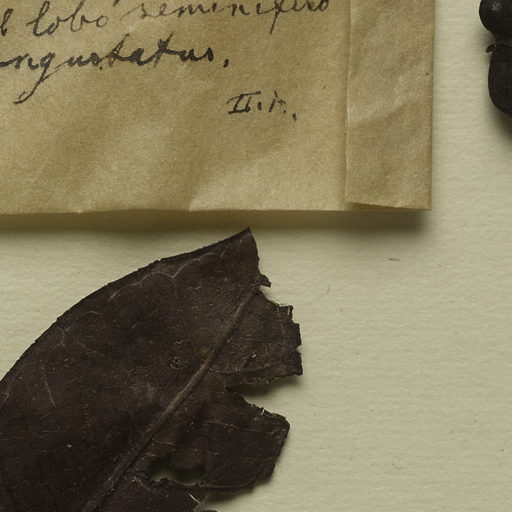 lobo seminifero
angustatus.